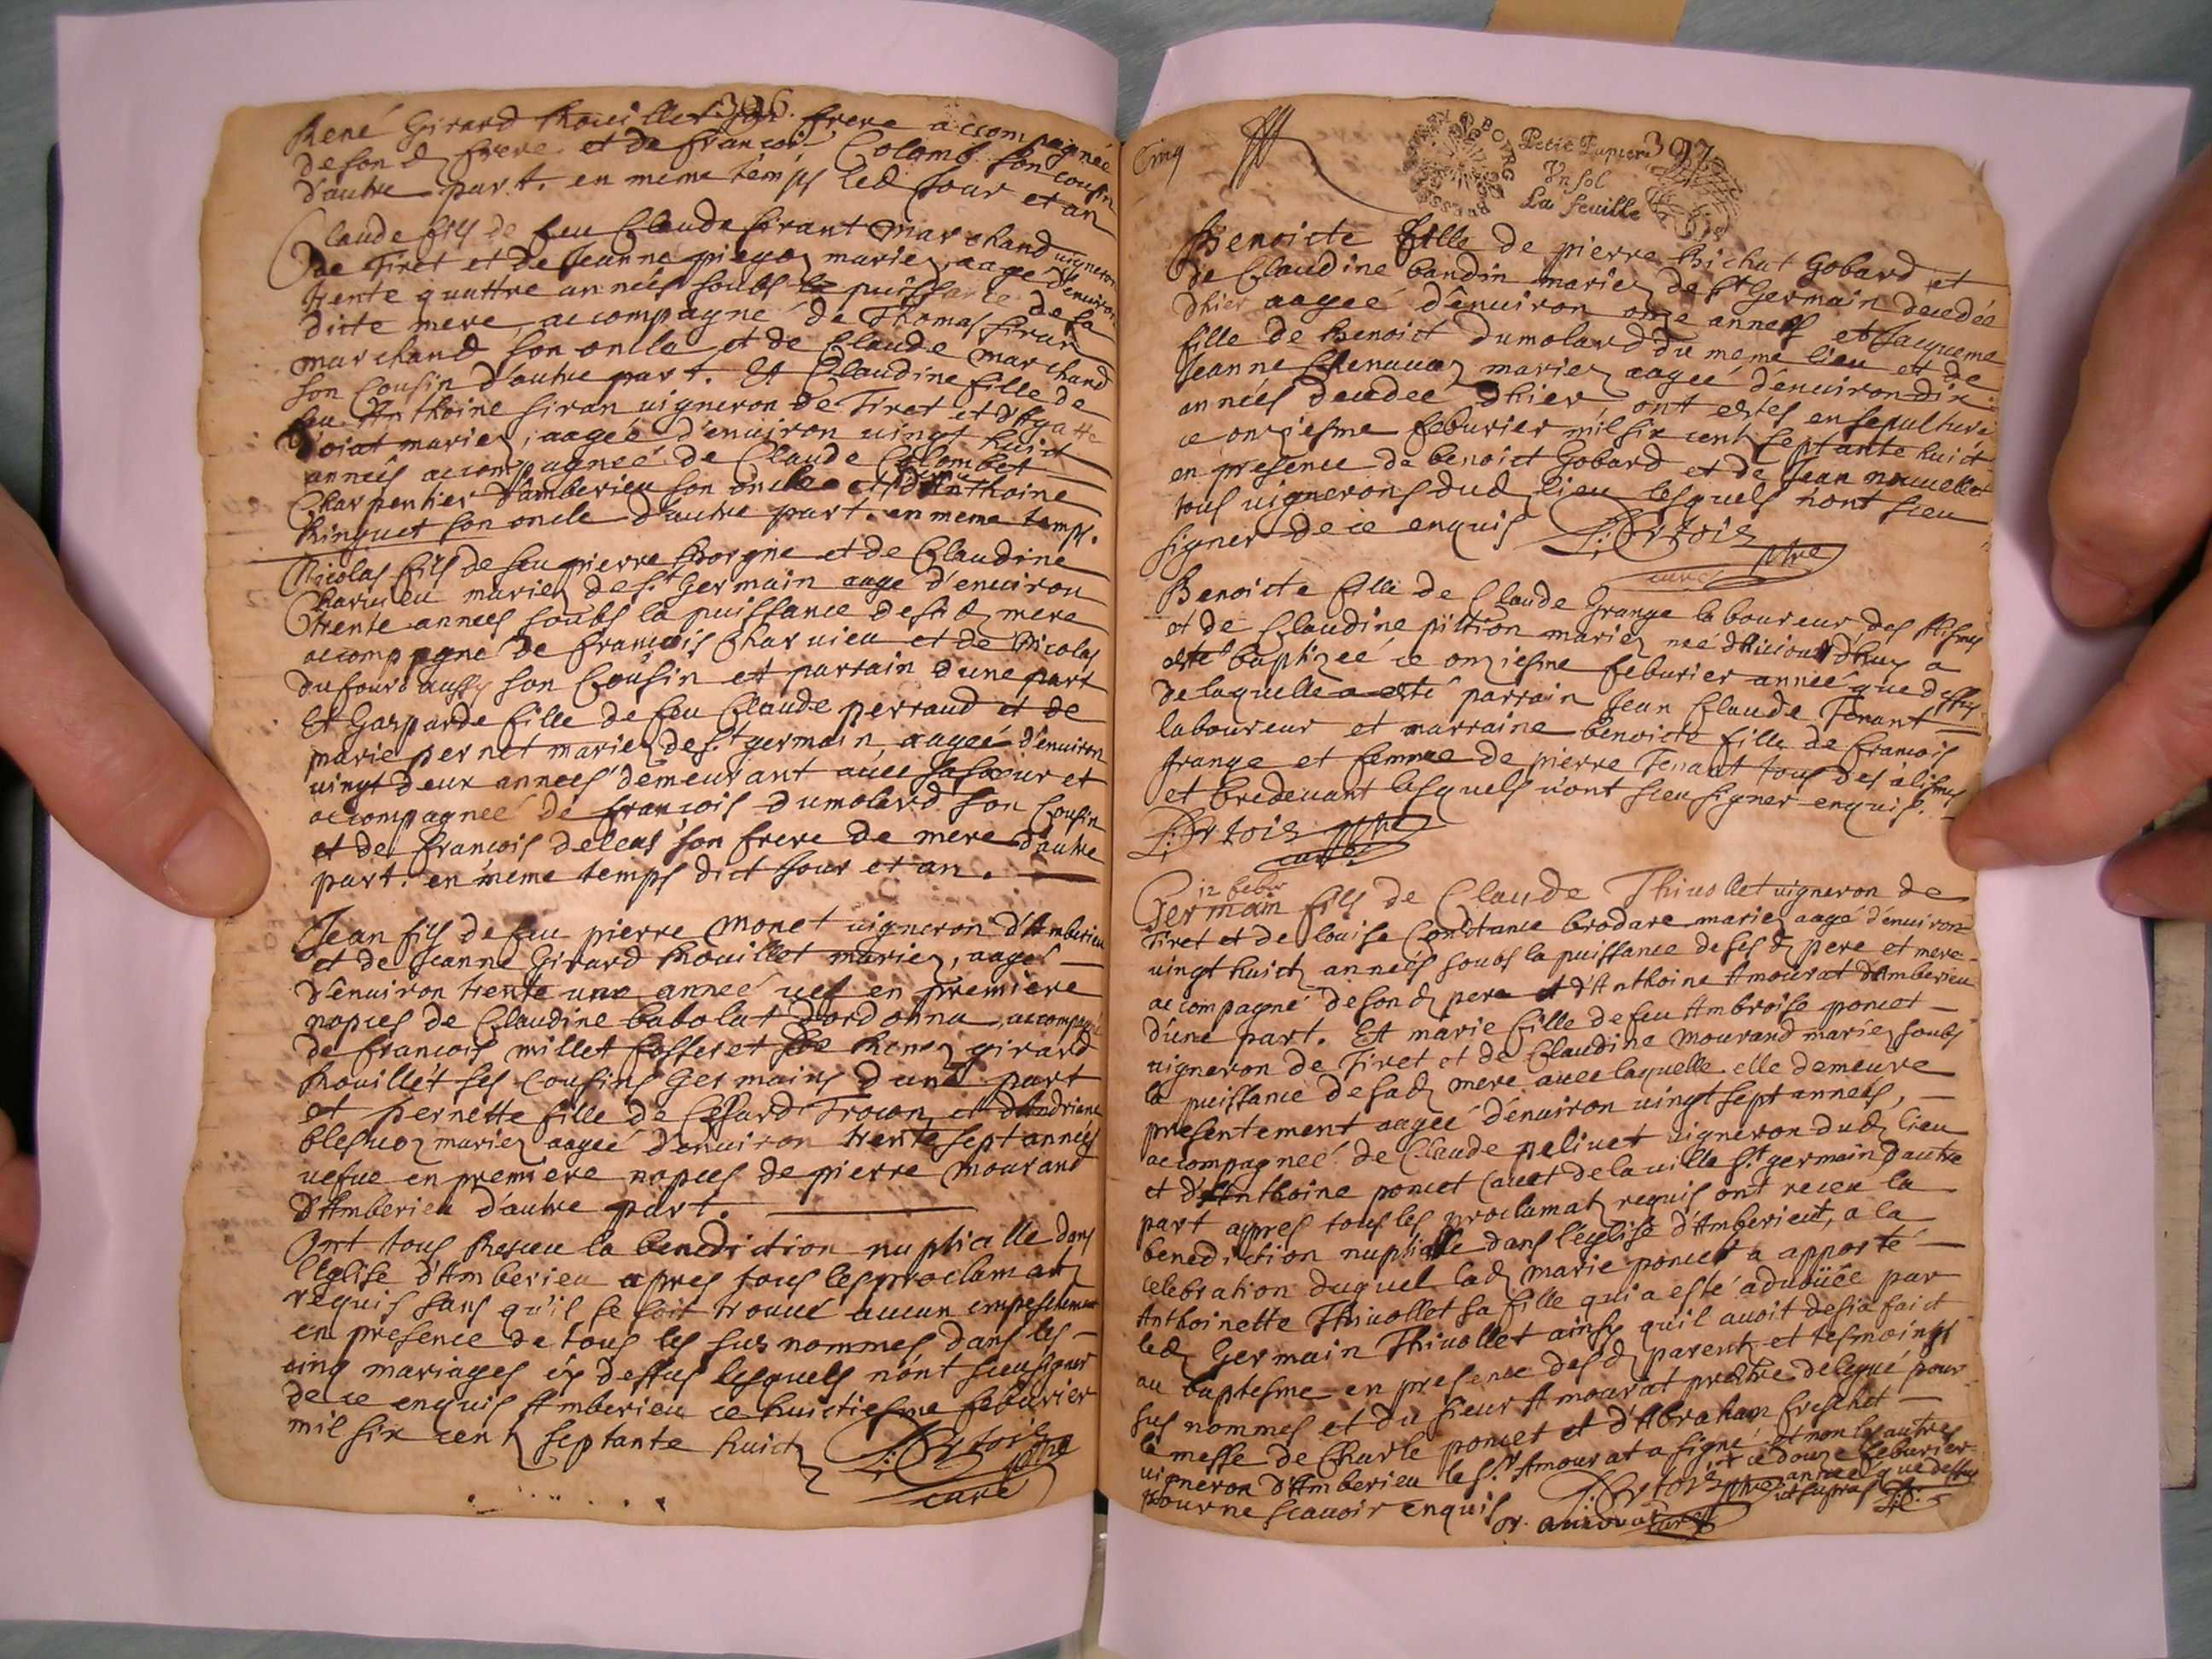 396
René Girard Rouillet son frere accompagnée
de son d frere et de francois Colomb son cousin
d'autre part. en méme témps led Jour et an
Claude fils de feu Claude Sirant marchand vigneron
de Tiret et de Jeanne mariez, aagé d'enuiron
trente quattre années soubs la puissance de sa
dicte mere accompagné de Thomas Siran
marchand son oncle et de Claude marchand
son Cousin d'autre part. Et Claudine fille de
feu Anthoine Siran uigneron de Tiret et d'Agatte
mariez, aageé d'enuiron uingt huict
années accompagneé de Claude Colombet
Charpentier d'amberieu son oncle et d'Anthoine
Ringuet son oncle d'autre part. en meme temps.
Nicolas fils de feu pierre Borgne et de Claudine
Charuieu mariez de St Germain aagé d'enuiron
trente années soubs la puissance de sa d mere
accompagné de francois Charuieu et de Nicolas
dufour aussy son Cousin et parrain d'une part
Et Gasparde fille de feu Claude perraud et de
marie pernet mariez de St germain aageé d'enuiron
uingt deux années demeurant auec sa soeur et
accompagneé de francois dumolard son Cousin
et de francois deleas son frere de mere d'autre
part. en méme temps dict Jour et an.
Jean fils de feu pierre monet uigneron d'Amberieu
et de Jeanne Girard Rouillet mariez, aagé
d'enuiron trente une anneé uef en premiere
nopces de Claudine babolat d'ordonna, accompagné
de francois millet fosseret et de Renez girard
Rouillét ses Cousins Germains d'une part
et pernette fille de Cesard Trocon et d'Andriene
blesuoz mariez aageé d'enuiron trente sept années
uefue en premiere nopces de pierre Mourand
d'Amberieu d'autre part.
Ont tous Receu la benediction nuptialle dans
l'église d'Amberieu apres tous les proclamatz
requis sans qu'il se soit trouué aucun empeschement
en presence de tous les sus nommes dans les
cinq mariages cy dessus lesquels n'ont sceu signer
de ce enquis Amberieu ce huictiesme feburier
mil six cent septante huict
curé
Cinq
BOVRG BRESSE
Petit Papier
Vn sol
La feuille
397
Benoicte fille de pierre Bichat Gobard et
de Claudine baudin mariez de St Germain decedée
d'hier aageé d'enuiron onze années et Jacqueme
fille de Benoict Dumolard du méme lieu et de
Jeanne Chenauaz mariez aageé d'enuiron dix
années decedeé d'hier ont estés ensepulturé
ce onziesme feburier mil six cent septante huict
en presence de benoict Gobard et de Jean nouellet
tous uignerons dud lieu lesquels n'ont sceu
signer de ce enquis
curé
Benoicte fille de Claude Grange laboureur des Alismes
et de Claudine pittion mariez neé d'huy a
esté baptizeé ce onziesme feburier anneé que dessus
de laquelle a esté parrain Jean Claude Tenant
laboureur et marraine benoicte fille de francois
grange et femme de pierre Tenant tous des alismes
et bredeuant lesquels n'ont sceu signer enquis.
12 febur
Germain fils de Claude Thiuollet uigneron de
Tiret et de louise Constance brodare mariez aagé d'enuiron
uingt huict années soubs la puissance de ses d pere et mere
accompagné de son d pere et d'Anthoine Amourat d'Amberieu
d'une part. Et marie fille de feu Ambroise poncet
uigneron de Tiret et de Claudine Mourand mariez soubs
la puissance de sa d mere auec laquelle elle demeure
presentement aageé d'enuiron uingt sept années,
accompagneé de Claude peliuet uigneron dud lieu
et d'Anthoine poncet Cauet de la uille St germain d'autre
part appres tous les proclamatz requis ont receu la
benediction nuptialle dans l'église d'Amberieu, a la
celebration duquel lad marie poncet a apporté
Anthoinette Thiuollet sa fille qui a esté aduoüée par
led Germain Thiuollet ainsy qu'il auoit desia faict
au baptesme en presence des d parents et tesmoings
sus nommes et du sieur Amourat prestre delegué pour
la messe de Charle poncet et d'Abraham freschet
uigneron d'Amberieu le Sr Amourat a signé et non les autres
pour ne scauoir enquis ce douze feburier
anneé que dessus
ut supra